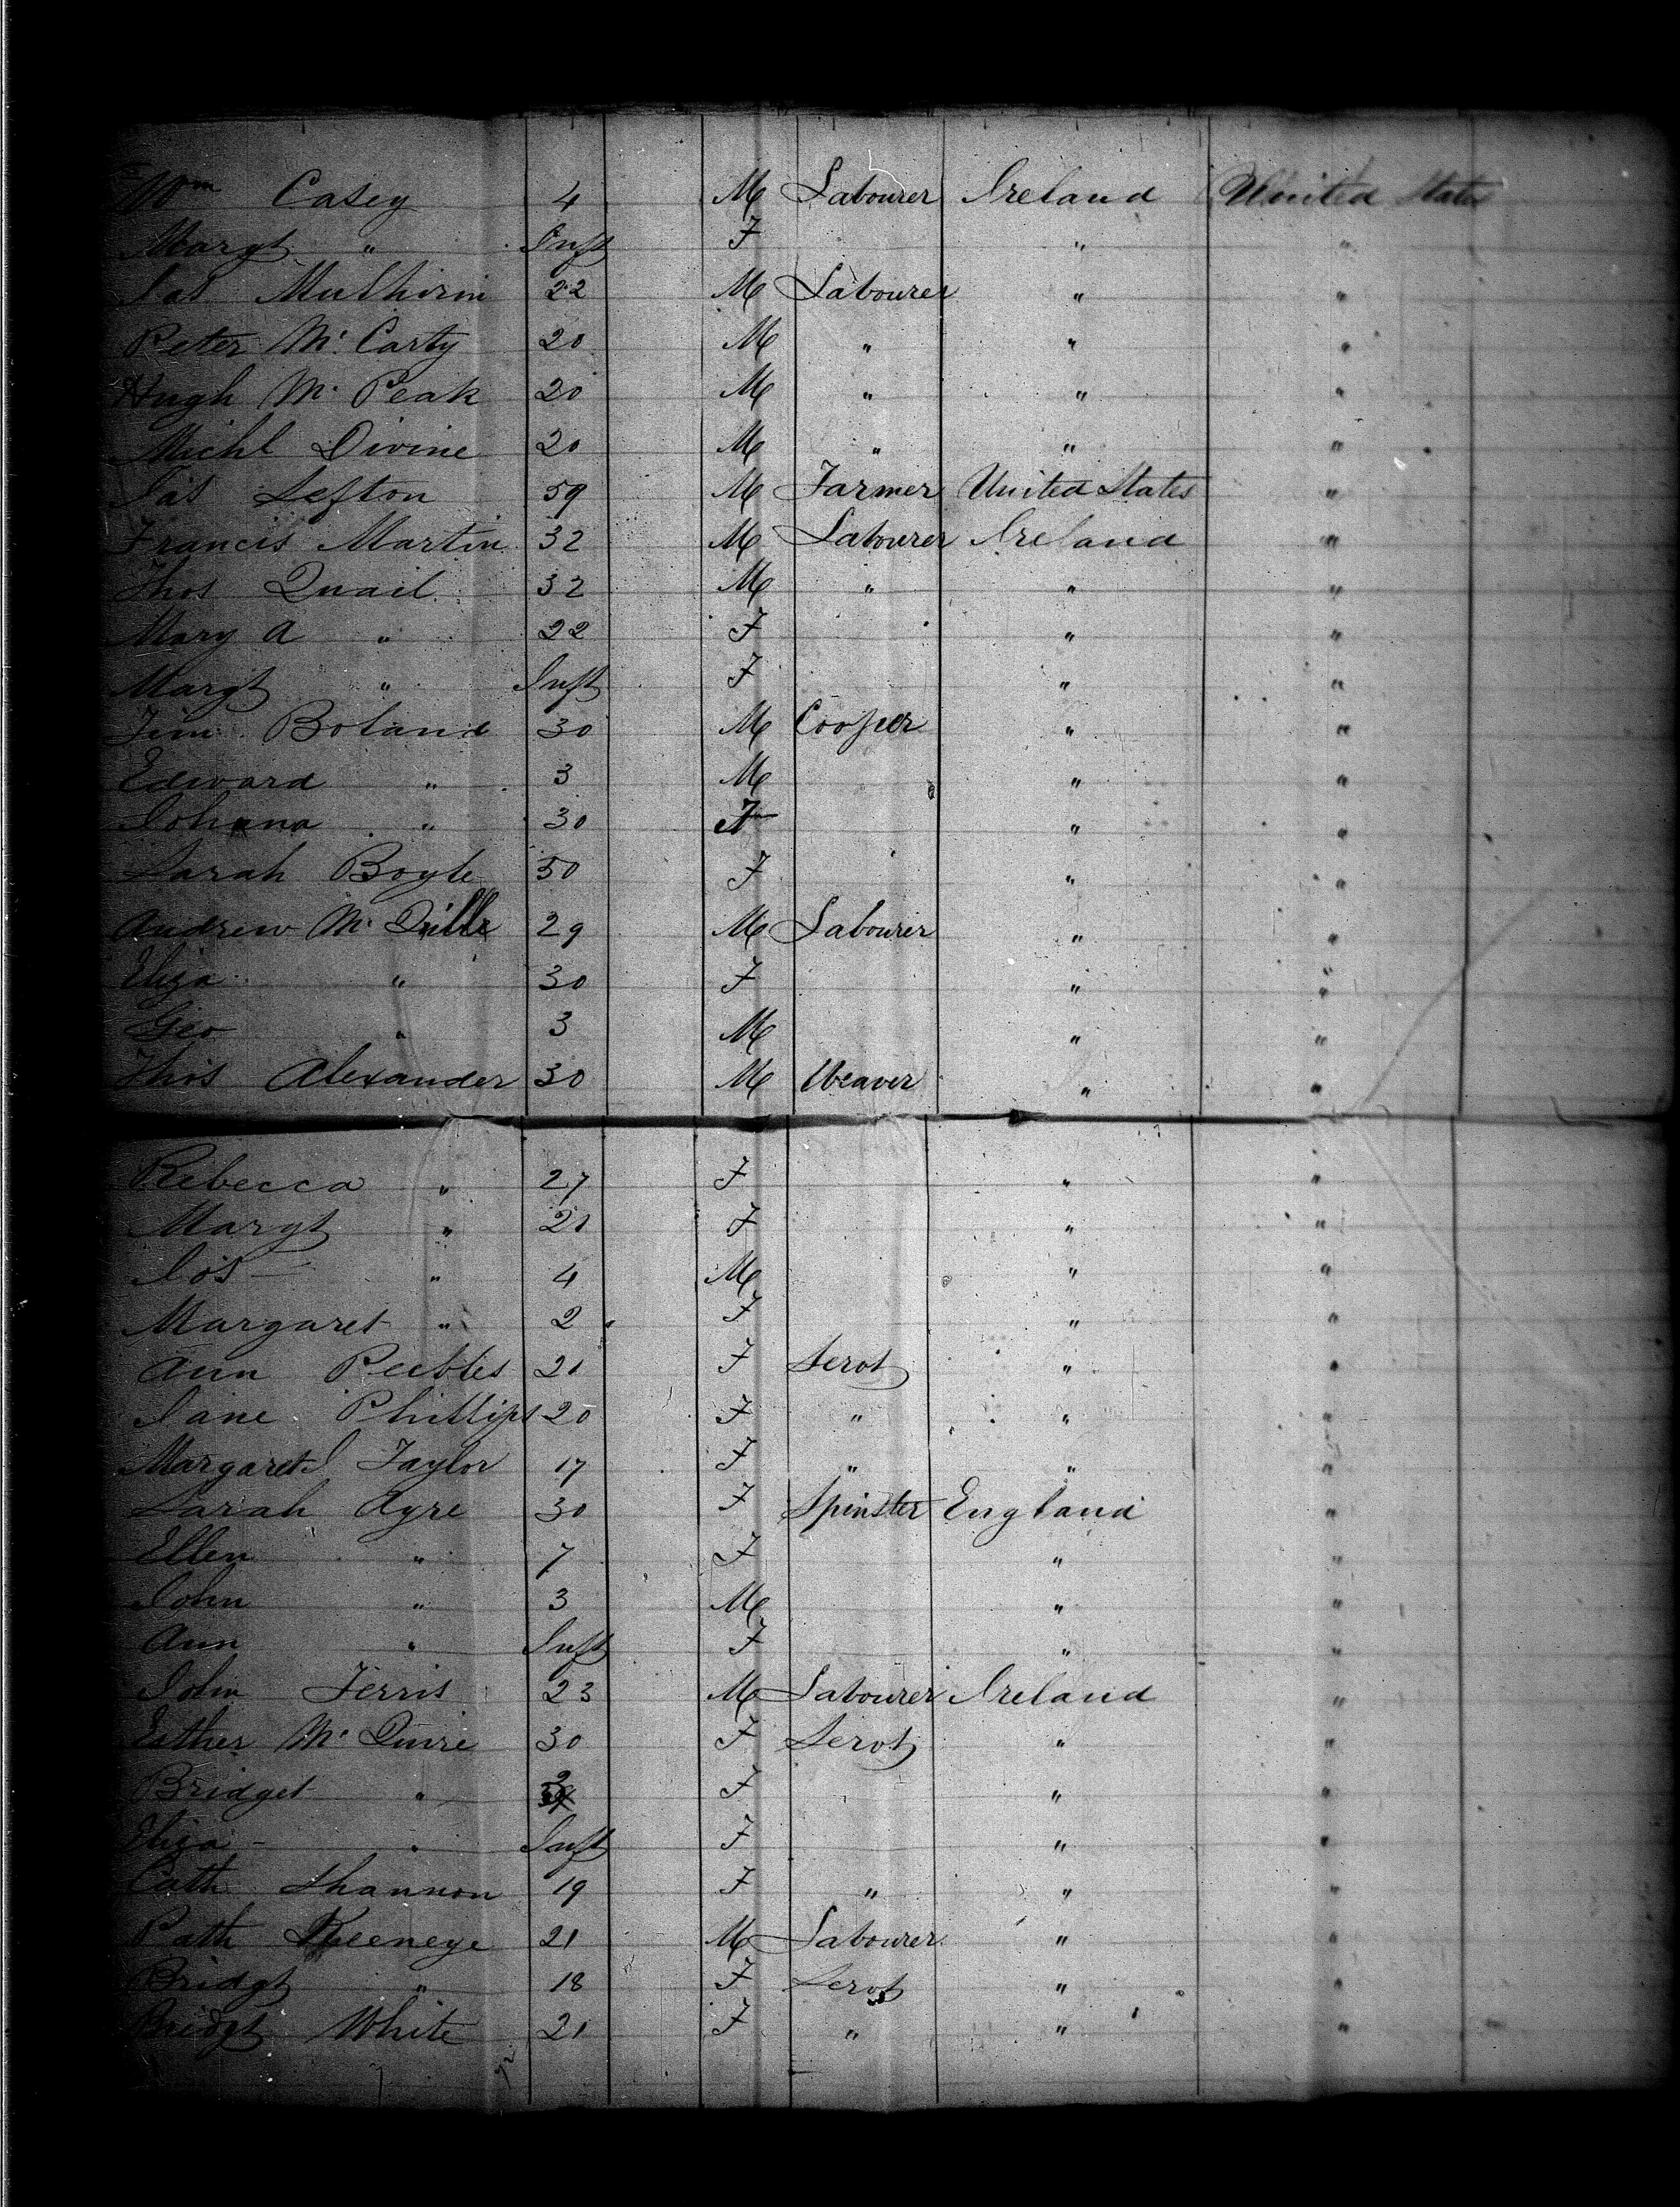 Wm Casey 4 M Labourer Ireland United States
Margt " Inft F " "
Jas Mulhirin 22 M Labourer " "
Peter Mc Carty 20 M " " "
Hugh Mc Peak 20 M " " "
Michl Divine 20 M " " "
Jas Lefton 59 M Farmer United States "
Francis Martin 32 M Labourer Ireland "
Thos Quail 32 M " " "
Mary A " 22 F " "
Margt " Inft F " "
Tim Boland 30 M Cooper " "
Edward " 3 M " "
Johana " 30 F " "
Sarah Boyle 50 F " "
Andrew Mc 29 M Labourer " "
Eliza " 30 F " "
Geo " 3 M " "
Thos Alexander 30 M Weaver " "
Rebecca " 27 F " "
Margt " 21 F " "
Jos " 4 M " "
Margaret " 2 F " "
Ann Peebles 21 F Servt " "
Jane Phillips 20 F " " "
Margaret J Taylor 17 F " " "
Sarah Ayre 30 F Spinster England "
Ellen " 7 F " "
John " 3 M " "
Ann " Inft F " "
John Ferris 23 M Labourer Ireland "
Esther Mc Quire 30 F Servt " "
Bridget " 3 F " "
Eliza " Inft F " "
Cath Shannon 19 F " " "
Patk Keeneye 21 M Labourer " "
Bridgt " 18 F Servt " "
Bridgt White 21 F " " "